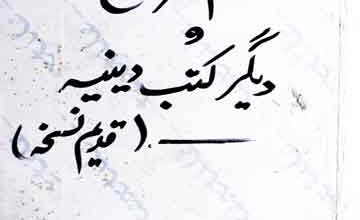 و
دیگر کتب دینیہ
(قدیم نسخہ)